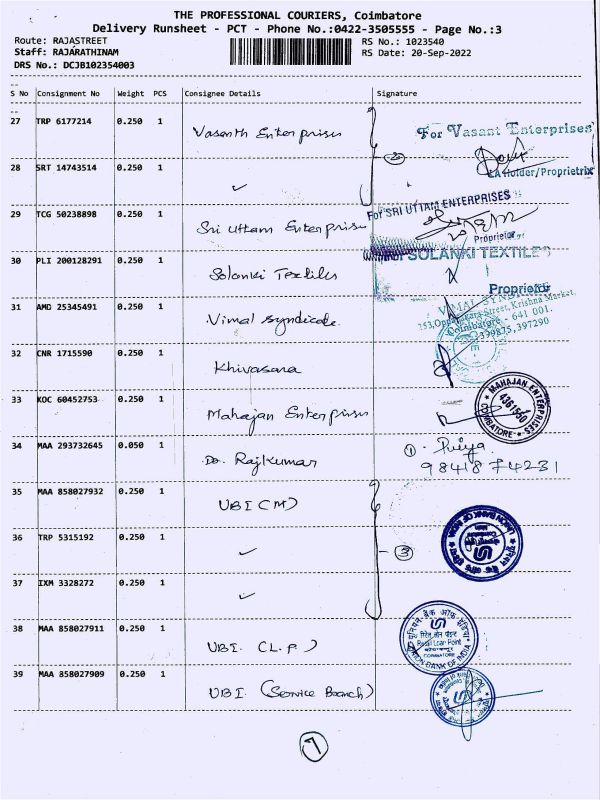 THE PROFESSIONAL COURIERS, Coimbatore
Delivery Runsheet - PCT - Phone No.:0422-3505555 - Page No.:3
Route: RAJASTREET
RS No.: 1023540
Staff: RAJARATHINAM
RS Date: 20-Sep-2022
DRS No.: DCJB102354003
S No Consignment No Weight PCS Consignee Details Signature
27 TRP 6177214 0.250 1 Vasanth Enterprises
For Vasant Enterprises
2
LA Holder/Proprietrix
28 SRT 14743514 0.250 1 ✓
For SRI UTTAM ENTERPRISES
29 TCG 50238898 0.250 1 Sri Uttam Enterprises
Proprietor
30 PLI 200128291 0.250 1 Solanki Textiles
SOLANKI TEXTILES
Proprietor
31 AMD 25345491 0.250 1 Vimal Syndicate
VIMAL SYNDICATE
Krishna Market,
Coimbatore - 641 001.
399875, 397290
32 CNR 1715590 0.250 1 Khivasara
33 KOC 60452753 0.250 1 Mahajan Enterprises
MAHAJAN ENTERPRISES
4361950
COIMBATORE
34 MAA 293732645 0.050 1 Dr. Rajkumar
1 - Priya
9841874231
35 MAA 858027932 0.250 1 UBI (M)
UNION BANK OF INDIA
36 TRP 5315192 0.250 1 ✓
3
37 IXM 3328272 0.250 1 ✓
38 MAA 858027911 0.250 1 UBI. (L.P)
यूनियन बैंक ऑफ इंडिया
Retail Loan Point
COIMBATORE
UNION BANK OF INDIA
39 MAA 858027909 0.250 1 UBI. (Service Branch)
7